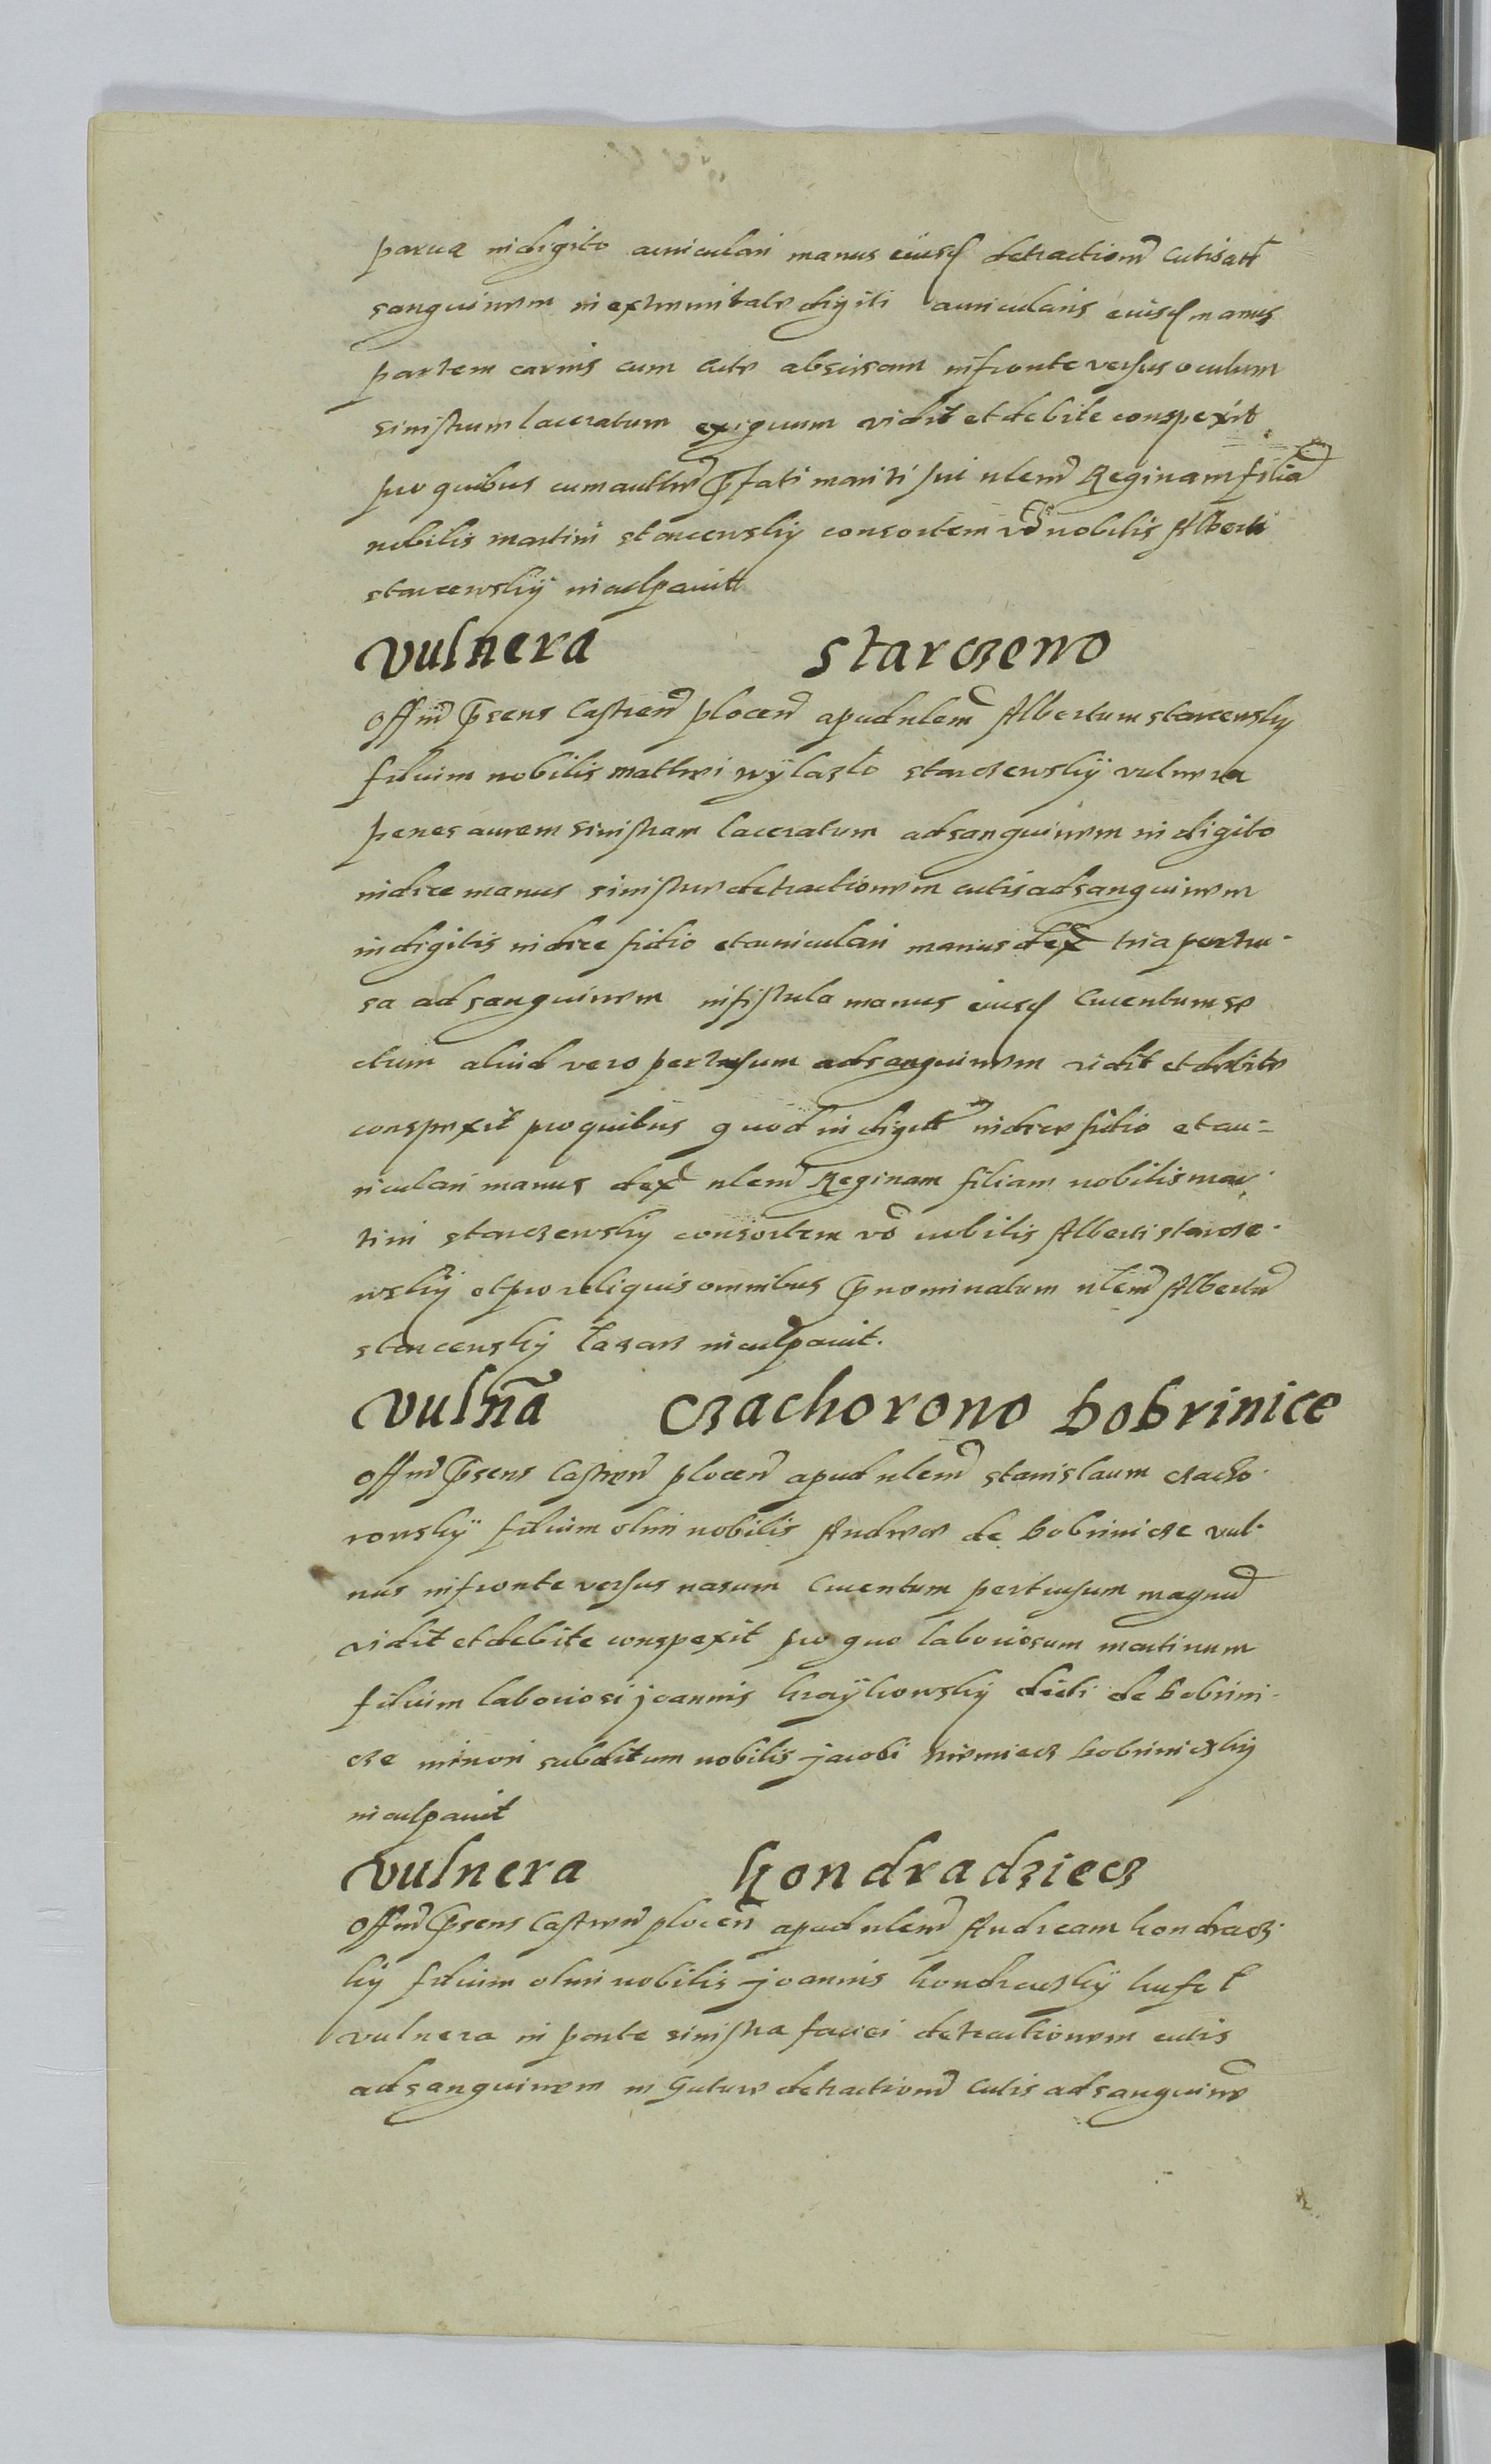 parua in digito auriculari manus eiusd detractionem cutis att
sanguinem in extremitate digiti auricularis eiusd manus
partem carnis cum cute abscisam in fronte versus oculum
sinistrum laceratum exiguum vidit et debite conspexit
pro quibus cum aucthore pfati mariti sui nlem Reginam filiā
nobilis martini starcewsky consortem vō nobilis Alberti
starcewskÿ inculpauitt
Vulnera Starczewo
Offm psens Castren plocen apud nlem Albertum starcewsky
filium nobilis mathei wÿlasło starczewskÿ vulnera
penes aurem sinistram laceratum ad sanguinem in digito
indice manus sinistre detractionem cutis ad sanguinem
in digitis indice fidio et auriculari manus dex tria pertu-
sa ad sanguinem in fistula manus eiusd Cruentum se
ctum aliud vero pertusum ad sanguinem vidit et debite
conspexit pro quibus quod in digitt indice fidio et au-
riculari manus dex nlem Reginam filiam nobilis mar-
tini starczewsky consortem vō nobilis Alberti starcze-
wskÿ et pro reliquis omnibus pnominatum nlem Albertū
starcewsky inculpauit.
Vulnā Czachorowo bobrinice
Offm psens Castren plocen apud nlem stanislaum czacho-
rowskÿ filium olim nobilis Andree de bobrinicze vul-
nus in fronte versus nasum Cruentum pertusum magnū
vidit et debite conspexit pro quo laboriosum martinum
filium laboriosi joannis kraÿkowsky dicti de bobrini-
cze minori subditum nobilis jacobi niemiecz bobriniczky
inculpauit
Vulnera kondradziecz
Offm psens Castren plocen apud nlem Andream kondracz-
ky filium olim nobilis joannis kondraczkÿ
vulnera in parte sinistra faciei detractionem cutis
ad sanguinem in Guture detractionē Cutis ad sanguinē